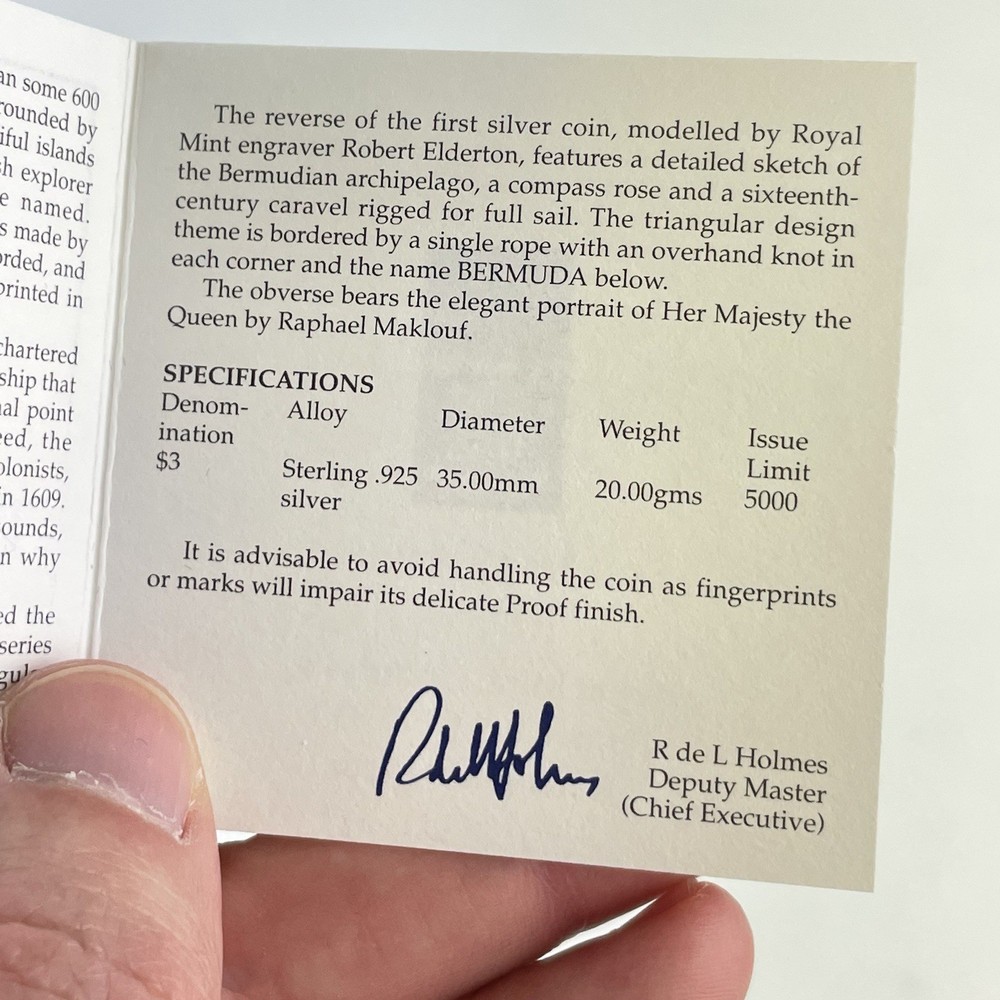 an some 600
rounded by
iful islands
h explorer
e named.
s made by
orded, and
printed in
chartered
ship that
al point
eed, the
olonists,
n 1609.
ounds,
n why
ed the
series
The reverse of the first silver coin, modelled by Royal
Mint engraver Robert Elderton, features a detailed sketch of
the Bermudian archipelago, a compass rose and a sixteenth-
century caravel rigged for full sail. The triangular design
theme is bordered by a single rope with an overhand knot in
each corner and the name BERMUDA below.
The obverse bears the elegant portrait of Her Majesty the
Queen by Raphael Maklouf.
SPECIFICATIONS
Denom- Alloy Diameter Weight Issue
ination Limit
$3 Sterling .925 35.00mm 20.00gms 5000
silver
It is advisable to avoid handling the coin as fingerprints
or marks will impair its delicate Proof finish.
R de L Holmes
Deputy Master
(Chief Executive)